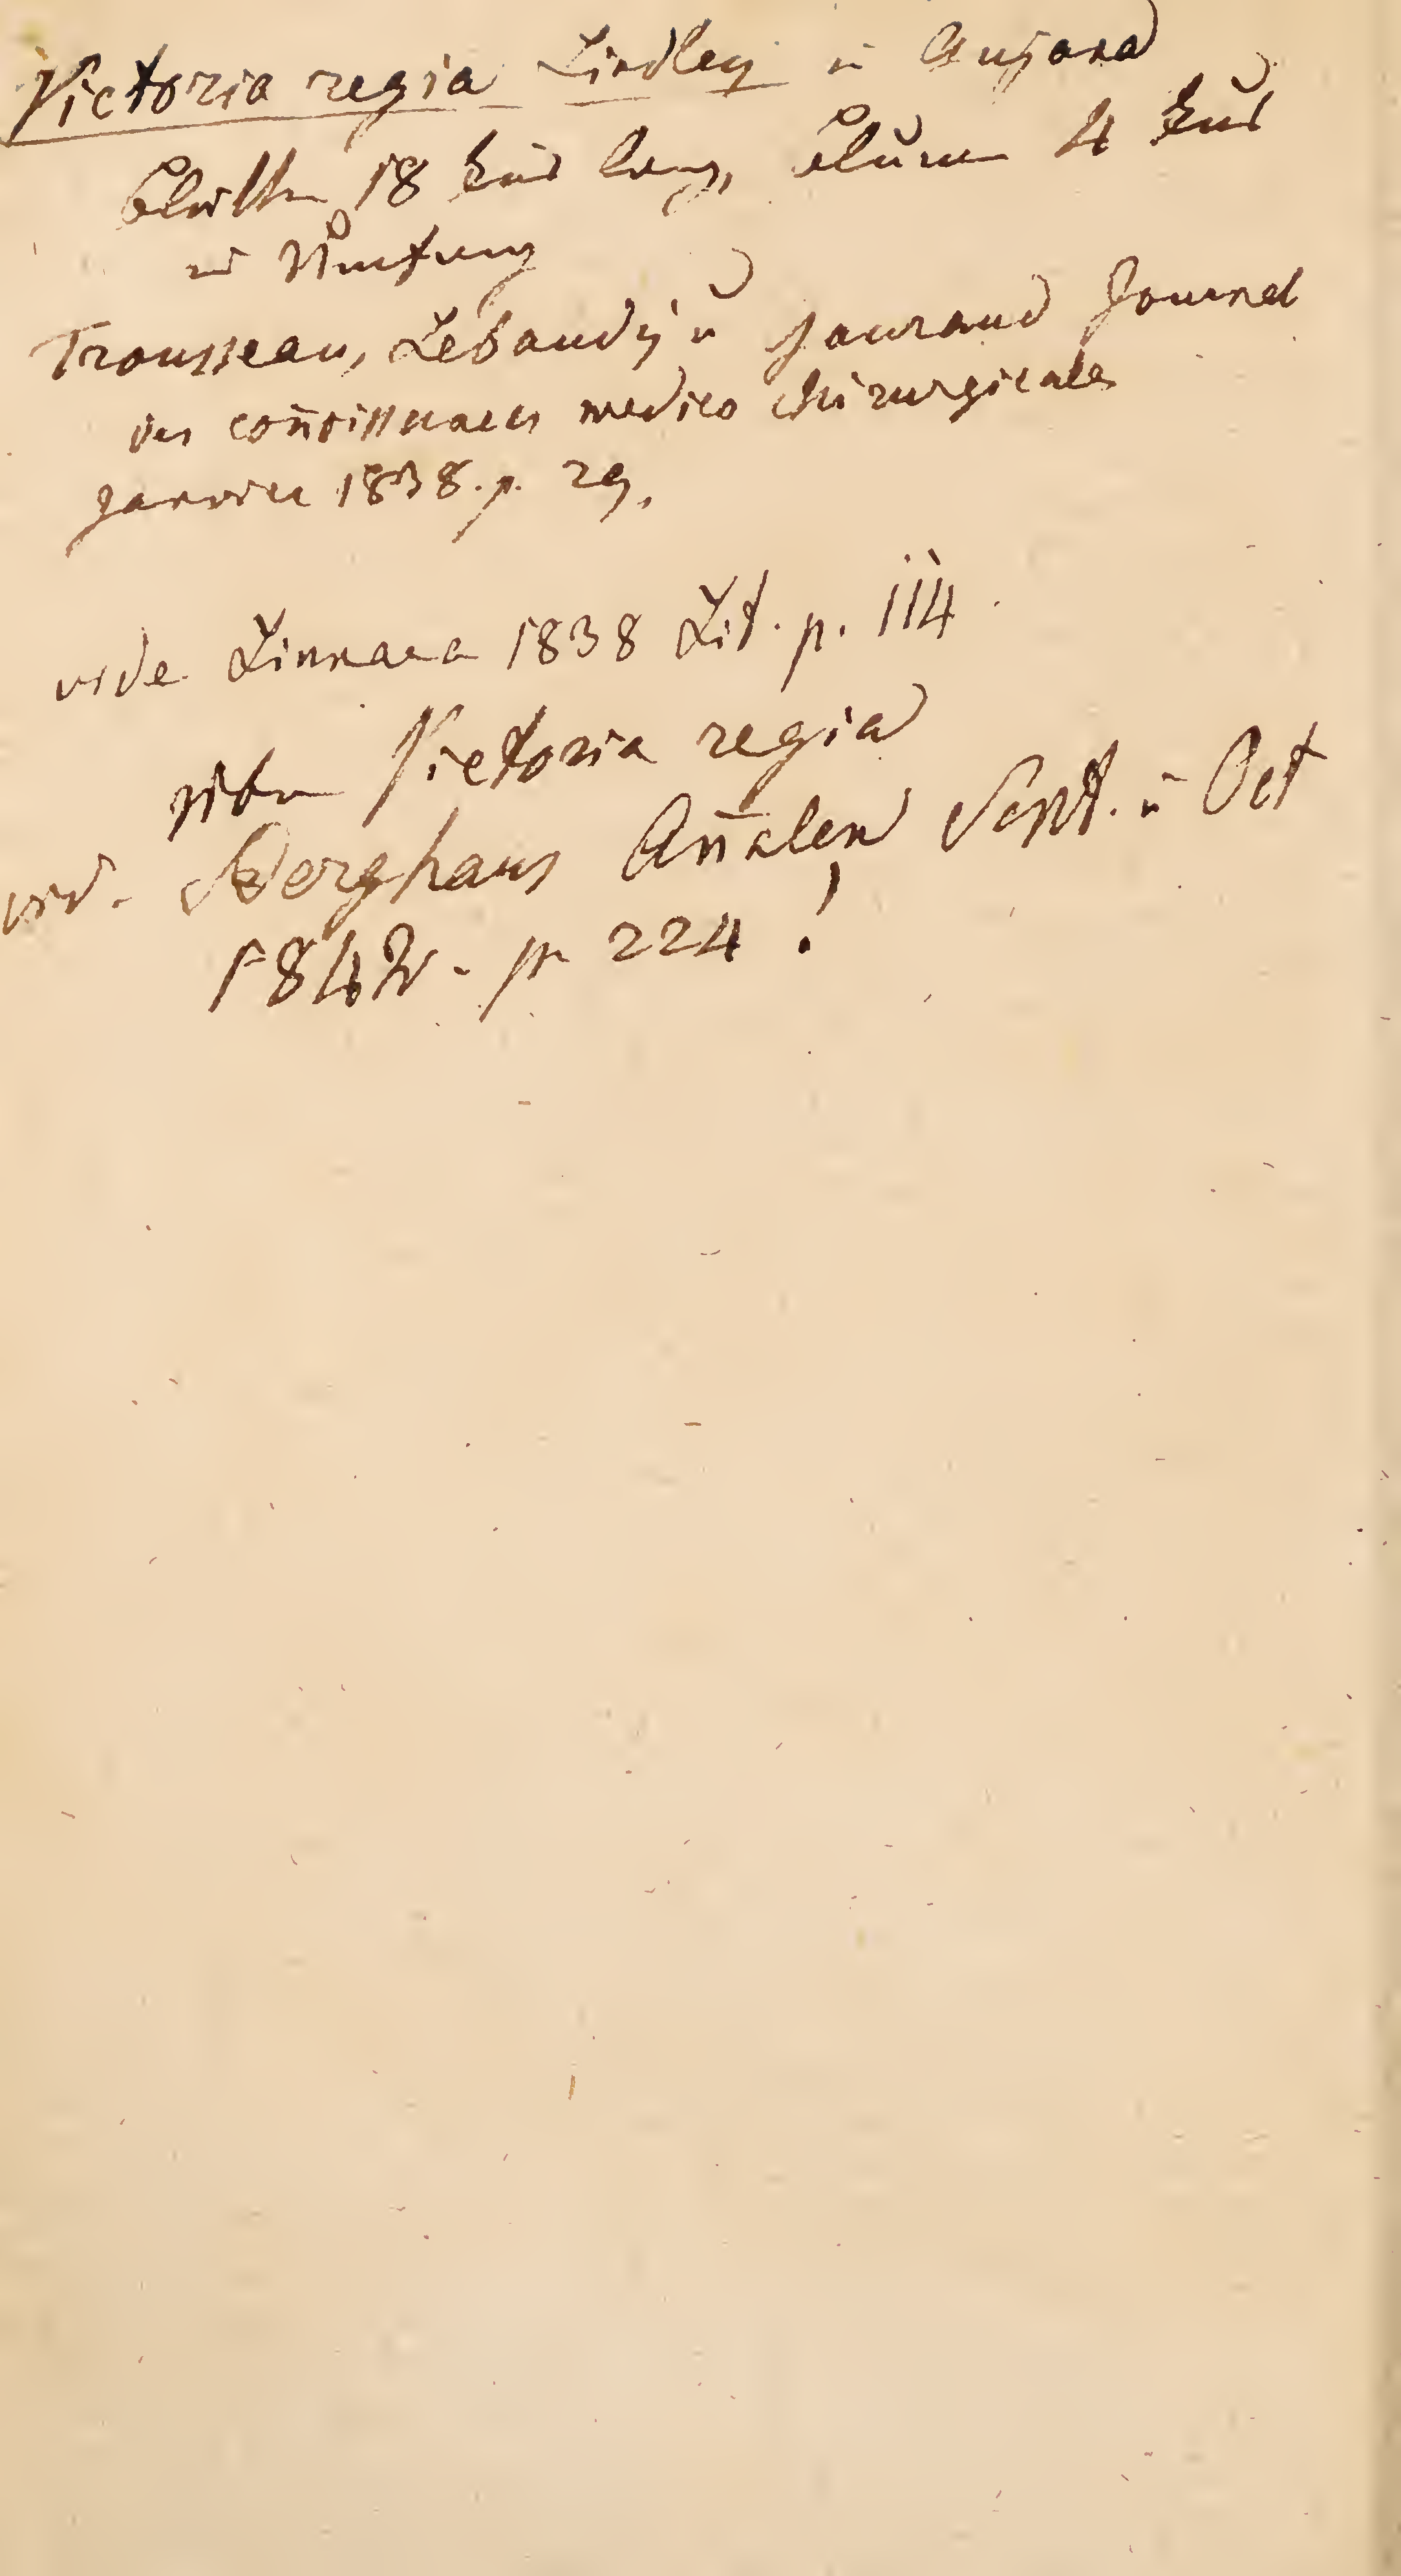 Victoria regia Lindley in Guyana
Blätter 18 Fuß lang, Blume 4 Fuß
im Umfang
Trousseau, Lebaudy u Gouraud Journal
des coñoissances medico chirurgicales
Janvier 1838. p. 29.
vide Linnaea 1838 Lit. p. 114.
über Victoria regia
vid. Berghaus Añalen Sept. u Oct
1842. p 224 !